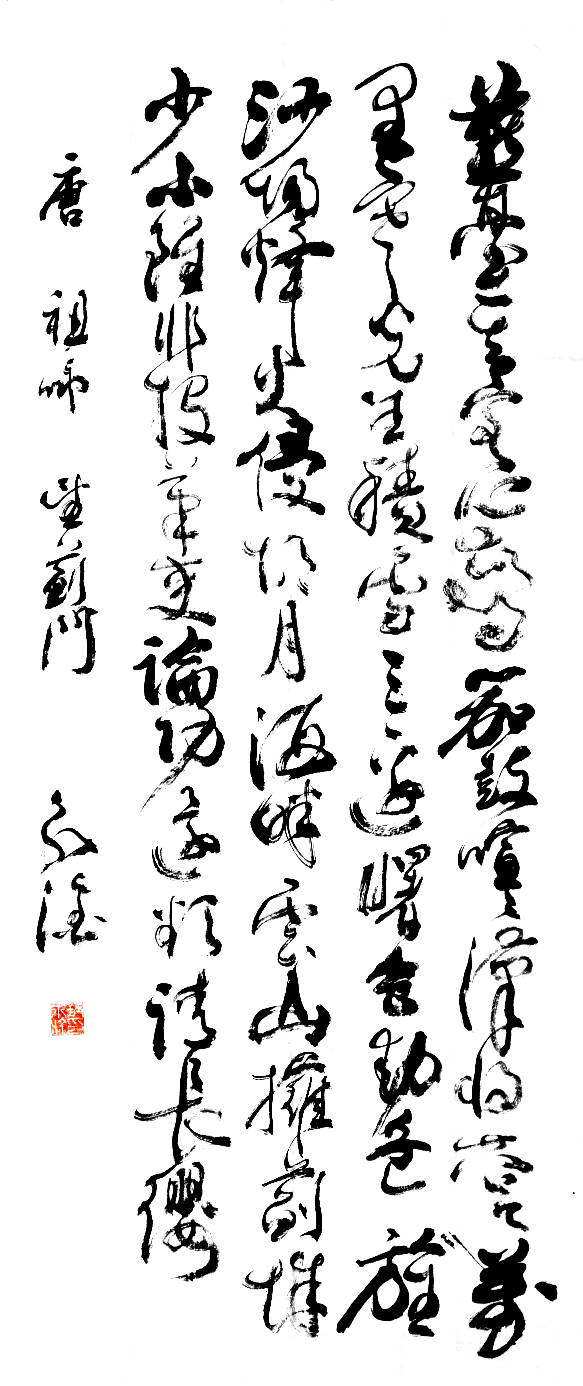 燕臺一去客心驚笳鼓喧喧漢將營萬
里寒光生積雪三邊曙色動危旌
沙場烽火侵胡月海畔雲山擁薊城
少小雖非投筆吏論功還欲請長纓
唐 祖咏 望薊門 永